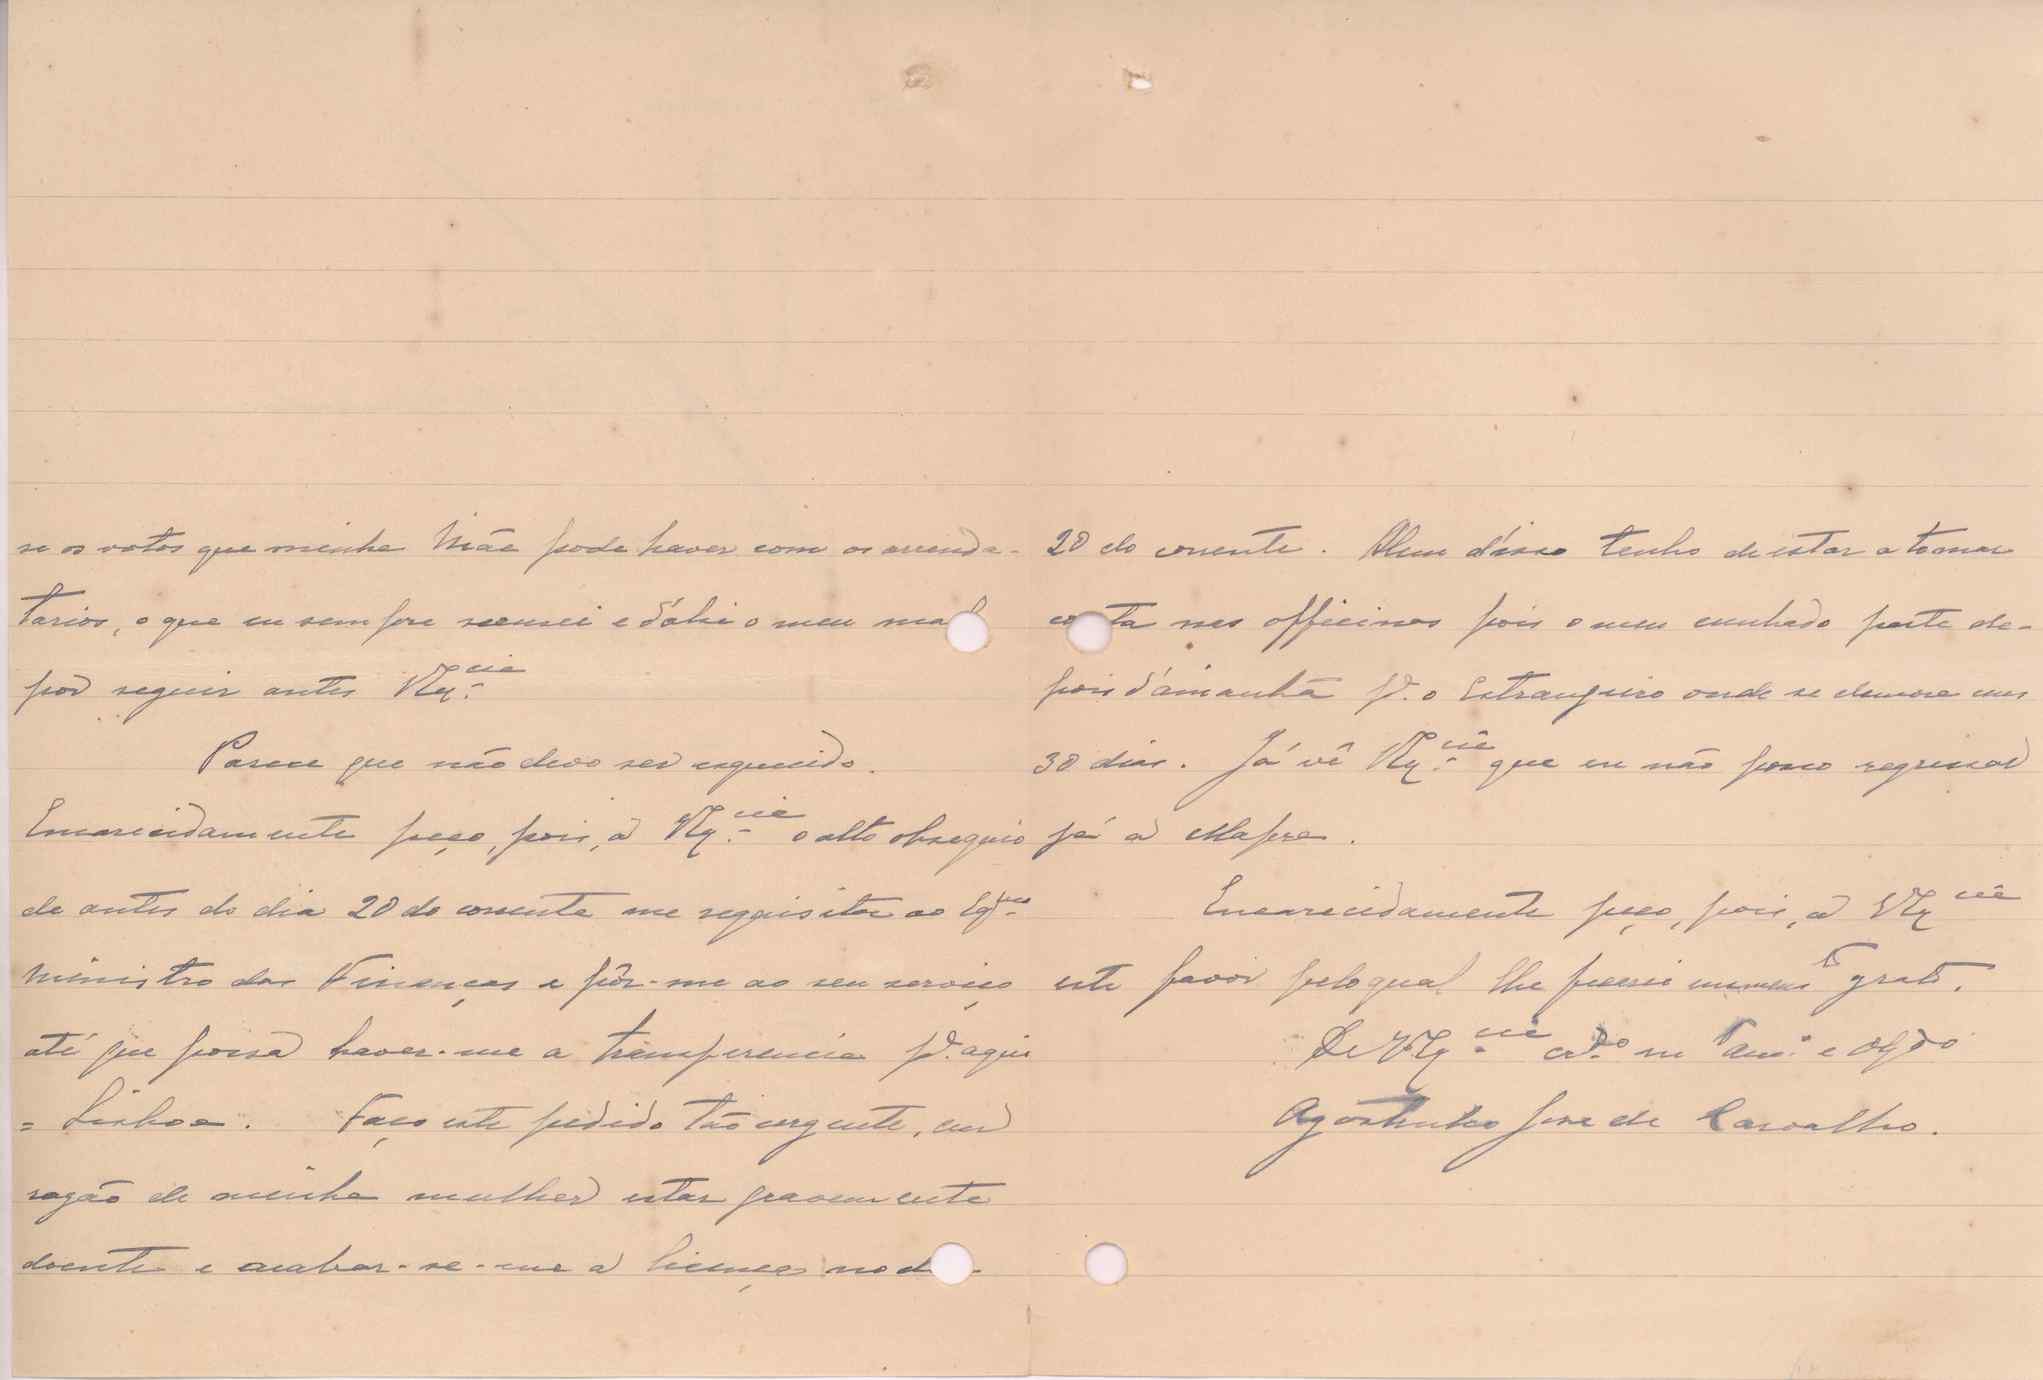 se os votos que minha Mãe pode haver com os arrenda-
tarios, o que eu sempre recusei e d'ahi o meu mal
por seguir antes VEx.cia
Parece que não devo ser esquecido.
Encarecidamente peço, pois, a VEx.cia o alto obsequio
de antes do dia 20 do corrente me requisitar ao Exmo
Ministro das Finanças e pôr-me ao seu serviço
até que possa haver-me a transferencia p.a aqui
= Lisboa. Faço este pedido tão urgente, em
razão de minha mulher estar gravemente
doente e acabar-se-me a licença no d
20 do corrente. Alem d'isso tenho de estar a tomar
conta nas officinas pois o meu cunhado parte de-
pois d'amanhã p.a o Estrangeiro onde se demora uns
30 dias. Já vê VEx.cia que eu não posso regressar
já a Mafra.
Encarecidamente peço, pois, a VExcia
este favor pelo qual lhe ficarei immens.to grato.
De VEx.cia cr.do m.to am.o e obgdo
Agostinho José de Carvalho.